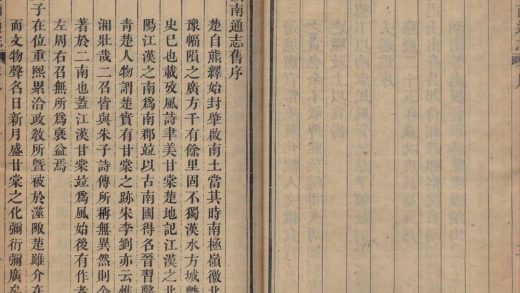 南通志舊序
楚自熊繹始封肇啟南土當其時南極嶺徼北
豫幅隕之廣方千有餘里固不獨漢水方城
史巳也載攷風詩聿美甘棠楚地記江漢之北
陽江漢之南爲南郡竝以古南國得名晉習鑿
靑楚人物謂楚實有甘棠之跡朱李劉亦云惟
湘壯哉二召皆與朱子詩傳所稱無異然則分
著於二南也蓋江漢甘棠竝爲風始後有作者
左周右召無所爲襃益焉
子在位重熙累洽政敎所曁被於陬楚雖介在
而文物聲名日新月盛甘棠之化彌衍彌廣矣